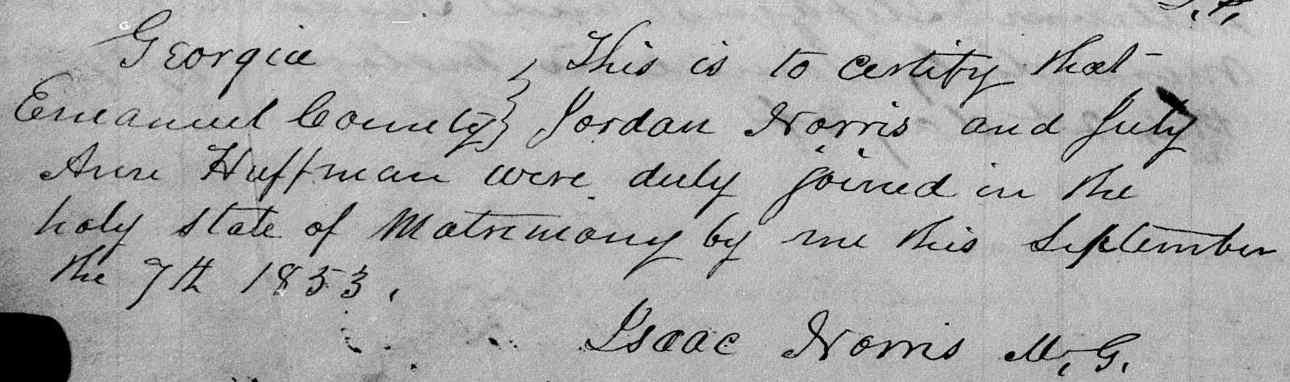 Georgia } This is to certify that
Emanuel County } Jordan Norris and July
Ann Huffman were duly joined in the
holy state of Matrimony by me this September
the 7th 1853.
Isaac Norris M.G.